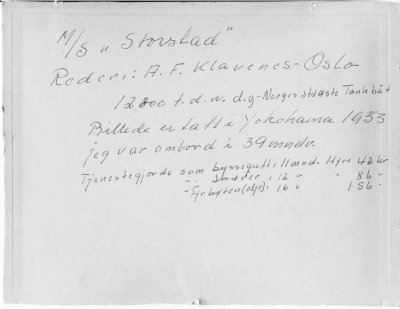 M/S „Storstad"
Rederi: A. F. Klavenes-Oslo
12800 t.d.w. d.g-Norges største Tank båt
Billede er tatt i Yokohama 1933
jeg var ombord i 39 mndr.
Tjenestegjorde som byssegutt i 11 mnd. Hyre 42 kr
" " Smører i 12 " " 86 "
" Fyrbøter(olje) i 16 " 156 "